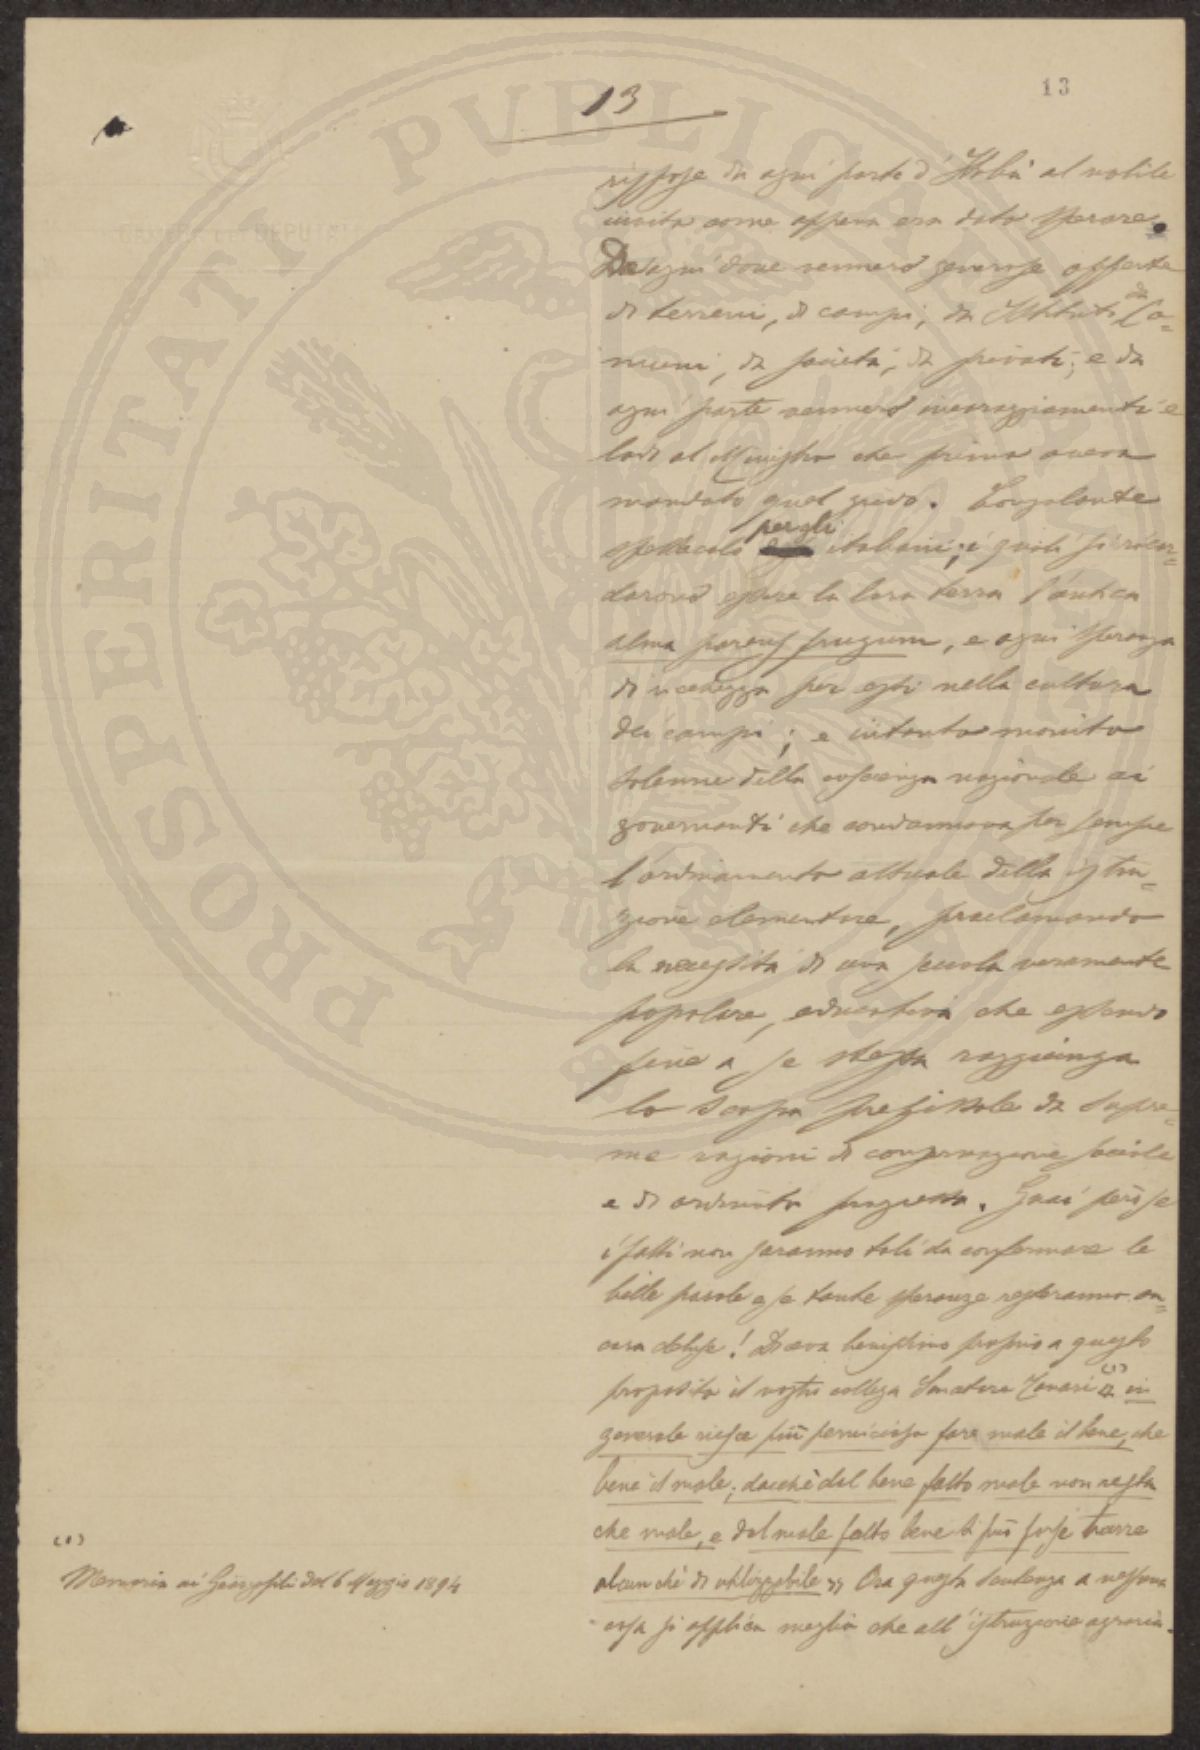 13
13
rispose da ogni parte d'Italia al nobile
invito come appena era dato sperare.
Da ogni dove vennero generose offerte
di terreni, di campi, da Istituti, da Co=
muni, da società, da privati; e da
ogni parte vennero incoraggiamenti e
lodi al Ministro che primo aveva
mandato quel grido. Consolante
spettacolo per gli italiani, i quali si ricor=
darono essere la loro terra l'antica
alma parens frugum, e ogni speranza
di ricchezza per essi nella cultura
dei campi; e intanto monito
solenne della coscienza nazionale ai
governanti che condannava per sempre
l'ordinamento attuale della istru=
zione elementare, proclamando
la necessità di una scuola veramente
popolare, educativa che essendo
fine a se stessa raggiunga
lo scopo prefissole da supre=
me ragioni di conservazione sociale
e di ordinato progresso. Guai però se
i fatti non saranno tali da confermare le
belle parole e se tante speranze resteranno an=
cora deluse! Diceva benissimo proprio a questo
proposito il vostro collega Senatore (1) in
generale riesce più pernicioso fare male il bene, che
bene il male; dacchè dal bene fatto male non resta
che male, e dal male fatto bene si può forse trarre
alcunchè di utilizzabile » Ora questa sentenza a nessuna
cosa si applica meglio che all'istruzione agraria.
(1)
Memoria ai Georgofili del 6 Maggio 1894
CAMERA DEI DEPUTATI
PROSPERITATI PVBLICAE